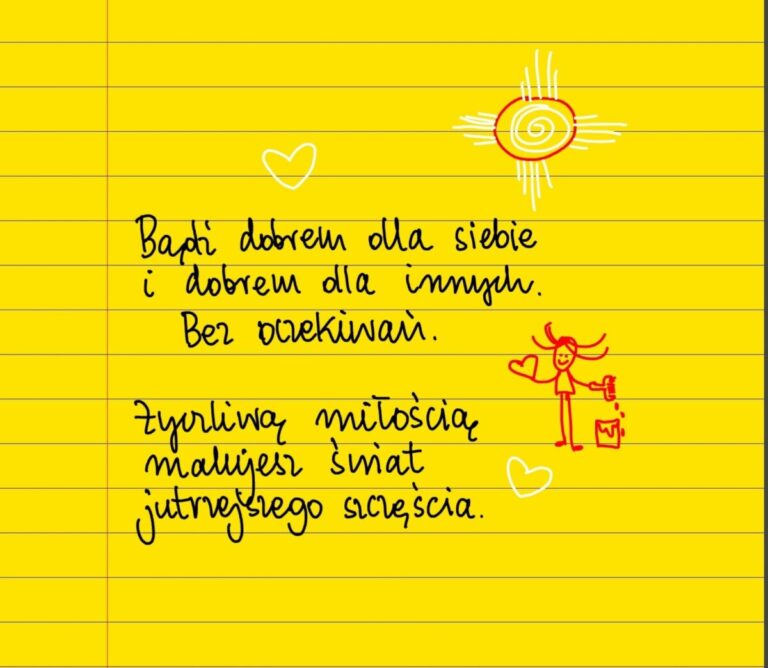 Bądź dobrem dla siebie
i dobrem dla innych.
Bez oczekiwań.
Życzliwą miłością
malujesz świat
jutrzejszego szczęścia.